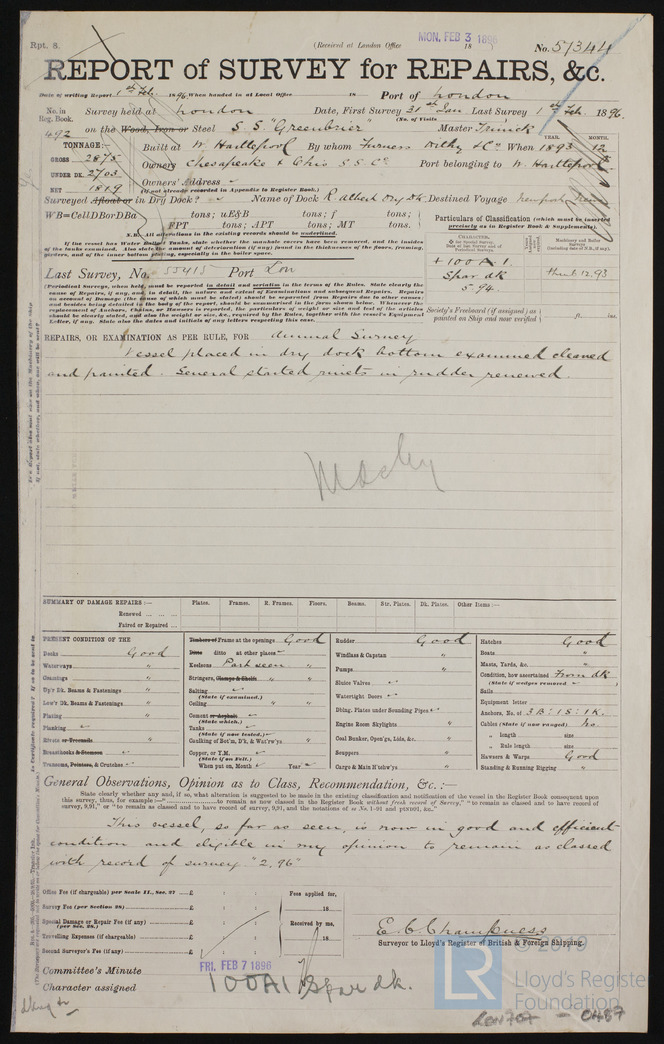 Rpt. 8.
(Received at London Office
MON. FEB 3 1896
18
No. 51344
REPORT of SURVEY for REPAIRS, &c.
Date of writing Report 1st Feb. 1896. When handed in at Local Office 18 Port of London
No. in Reg. Book. Survey held at London Date, First Survey 31st Jan. Last Survey 1st Feb. 1896.
(No. of Visits
492 on the Wood, Iron or Steel S.S. "Greenbrier" Master
TONNAGE:—
GROSS 2875
UNDER DK. 2703
NET 1819
Built at W. Hartlepool By whom Furness Withy & Co. When 1893 12
YEAR. MONTH.
Owners Chesapeake & Ohio S.S. Co. Port belonging to W. Hartlepool
Owners' Address
(if not already recorded in Appendix to Register Book.)
Surveyed Afloat or in Dry Dock? Name of Dock R. Albert Dry Dk. Destined Voyage Newport News
WB=CellDBorDBa tons; uE&B tons; f tons;
FPT tons; APT tons; MT tons.
N.B. All alterations in the existing records should be underlined.
If the vessel has Water Ballast Tanks, state whether the manhole covers have been removed, and the insides of the tanks examined. Also state the amount of deterioration (if any) found in the thicknesses of the floors, framing, girders, and of the inner bottom plating, especially in the boiler space.
Particulars of Classification (which must be inserted precisely as in Register Book & Supplements).
CHARACTER.
Machinery and Boiler Surveys
(including date of N.B., if any).
+100A1.
Spar dk
5.94.
12.93
Last Survey, No. 55415 Port Lon
(Periodical Surveys, when held, must be reported in detail and seriatim in the terms of the Rules. State clearly the cause of Repairs, if any, and, in detail, the nature and extent of Examinations and subsequent Repairs. Repairs on account of Damage (the cause of which must be stated) should be separated from Repairs due to other causes; and besides being detailed in the body of the report, should be summarised in the form shown below. Whenever the replacement of Anchors, Chains, or Hawsers is reported, the particulars of weight or size and test of the articles should be clearly stated, and also the weight or size, &c., required by the Rules, together with the vessel's Equipment Letter, if any. State also the dates and initials of any letters respecting this case.
Society's Freeboard (if assigned) as painted on Ship and now verified ft. ins.
REPAIRS, OR EXAMINATION AS PER RULE, FOR Annual Survey
Vessel placed in dry dock bottom examined cleaned
and painted. Several started rivets in rudder renewed.
SUMMARY OF DAMAGE REPAIRS:— Plates. Frames. R. Frames. Floors. Beams. Str. Plates. Dk. Plates. Other Items:—
Renewed ... ... ...
Faired or Repaired ...
PRESENT CONDITION OF THE
Decks Good
Waterways "
Coamings "
Up'r Dk. Beams & Fastenings "
Low'r Dk. Beams & Fastenings "
Plating "
Planking
Rivets or Treenails "
Breasthooks & Stemson
Transoms, Pointers, & Crutches
Timbers or Frame at the openings Good
Ditto ditto at other places
Keelsons Part seen "
Stringers, Clamps & Shelfs " "
Salting
(State if examined.)
Ceiling " "
Cement or Asphalt
(State which.)
Tanks
(State if now tested.)
Caulking of Bot'm, D'k, & Wat'rw'ys "
Copper, or Y.M.
(State if on Felt.)
When put on, Month Year
Rudder Good
Windlass & Capstan "
Pumps "
Sluice Valves
Watertight Doors
Dbling. Plates under Sounding Pipes
Engine Room Skylights "
Coal Bunker, Open'gs, Lids, &c. "
Scuppers "
Cargo & Main H'tchw'ys "
Hatches Good
Boats "
Masts, Yards, &c. "
Condition, how ascertained From dk
(State if wedges removed
Sails
Equipment letter
Anchors, No. of 3B: 1S: 1K.
Cables (State if now ranged) No.
" length size
" Rule length size
Hawsers & Warps Good
Standing & Running Rigging "
General Observations, Opinion as to Class, Recommendation, &c.:—
State clearly whether any and, if so, what alteration is suggested to be made in the existing classification and notification of the vessel in the Register Book consequent upon
this survey, thus, for example:—" to remain as now classed in the Register Book without fresh record of Survey," "to remain as classed and to have record of
survey, 9,91," or "to remain as classed and to have record of survey, 9,91, and the notations of ss No. 1-91 and ptNB91, &c."
This vessel, so far as seen, is now in good and efficient
condition and eligible in my opinion to remain as classed
with record of survey "2.96"
Office Fee (if chargeable) per Scale II., Sec. 27 £
Survey Fee (per Section 28) £
Special Damage or Repair Fee (if any) £
(per Sec. 28.)
Travelling Expenses (if chargeable) £
Second Surveyor's Fee (if any) £
Fees applied for,
18
Received by me,
18
E. C. Champness
Surveyor to Lloyd's Register of British & Foreign Shipping.
Committee's Minute FRI. FEB 7 1896
Character assigned 100A1 Spar dk.
© 2019
LR Lloyd's Register
Foundation